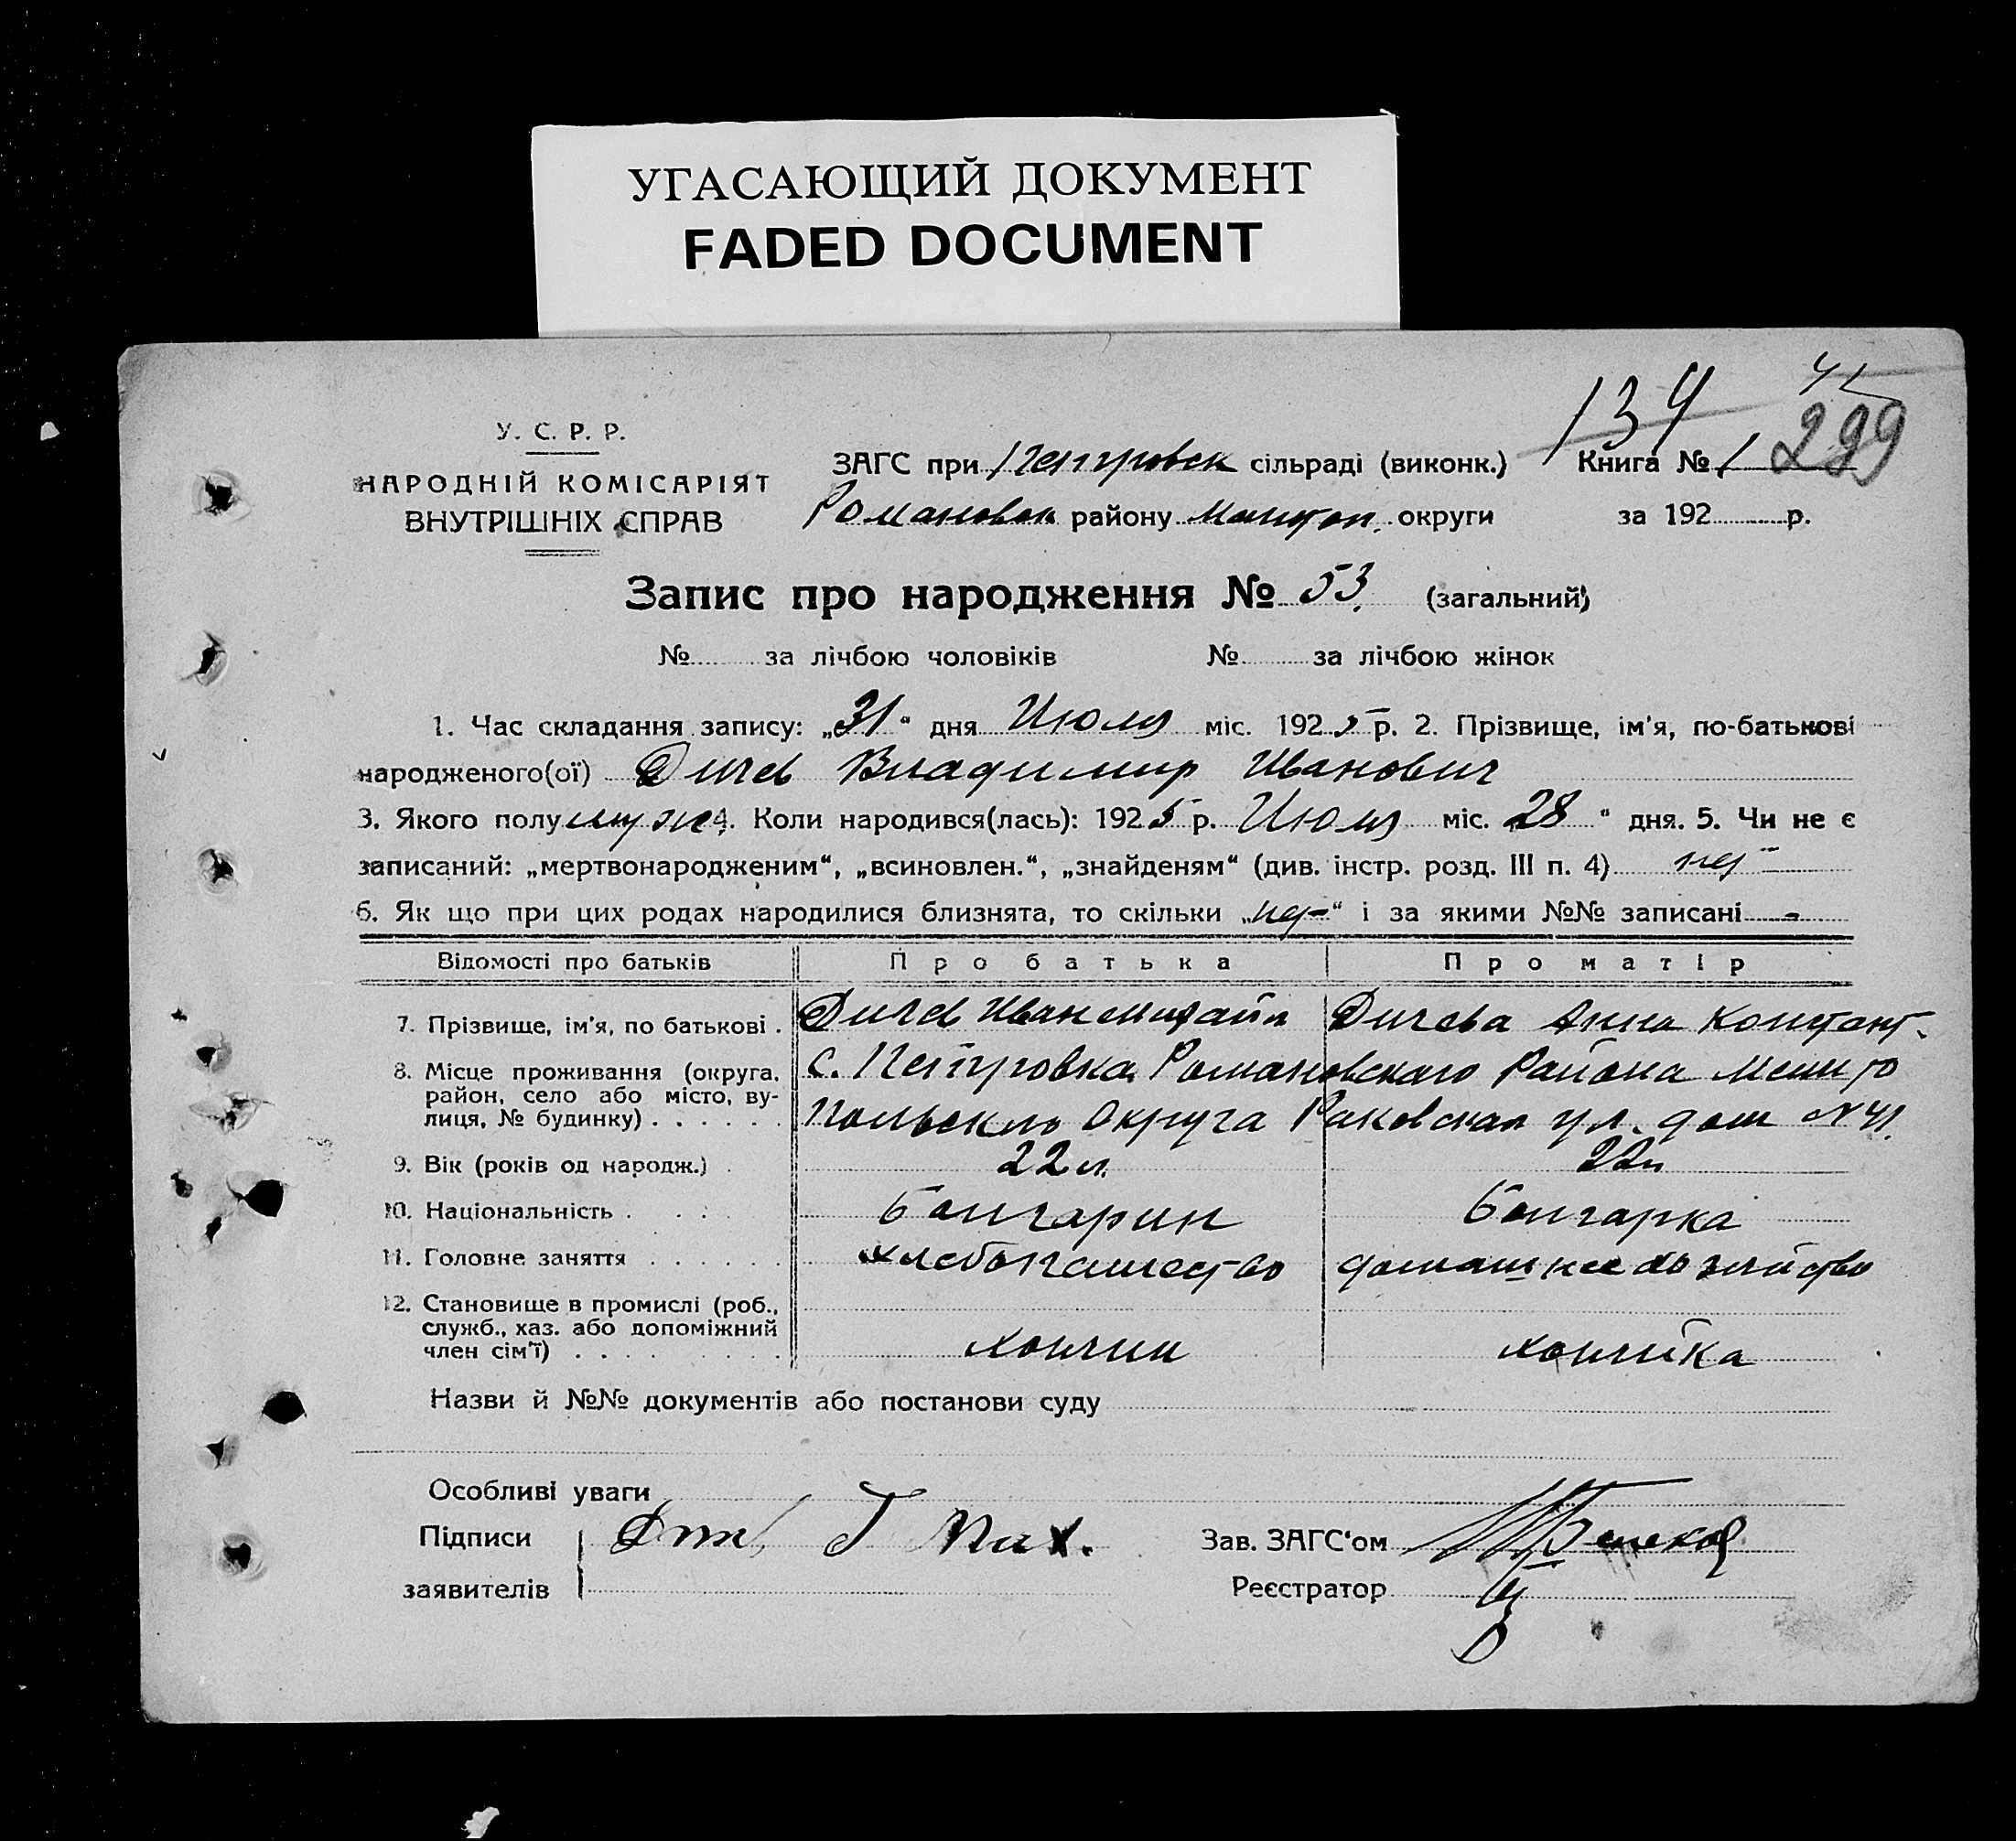 УГАСАЮЩИЙ ДОКУМЕНТ
FADED DOCUMENT
134
299
У. С. Р. Р.
НАРОДНІЙ КОМІСАРІЯТ
ВНУТРІШНІХ СПРАВ
ЗАГС при Петровск сільраді (виконк.) Книга № 1
Романовск району округи за 192 р.
Запис про народження № 53. (загальний)
№ за лічбою чоловіків № за лічбою жінок
1. Час складання запису: „31“ дня Июля міс. 1925 р. 2. Прізвище, ім'я, по-батькові
народженого(ої) Дичев Владимир Иванович
3. Якого полу муж 4. Коли народився(лась): 1925 р. Июля міс. „28“ дня. 5. Чи не є
записаний: „мертвонародженим“, „всиновлен.“, „знайденям“ (див. інстр. розд. III п. 4) нет
6. Як що при цих родах народилися близнята, то скільки „нет“ і за якими №№ записані -
Відомості про батьків Про батька Про матір
7. Прізвище, ім'я, по батькові . Дичев Иван Михайл Дичева Анна Констант.
8. Місце проживання (округа, район, село або місто, вулиця, № будинку) . . . . . . с. Петровка Романовского Района Мелито
польского Округа Раковская ул. дом № 41.
9. Вік (років од народж.) . 22 л. 22 л
10. Національність . . . . Болгарин Болгарка
11. Головне заняття . . . . . . хлебопашество домашнее хозяйство
12. Становище в промислі (роб.,
служб., хаз. або допоміжний
член сім'ї) . . . . . . . хозяин хозяйка
Назви й №№ документів або постанови суду
Особливі уваги
Підписи Зав. ЗАГС'ом
заявителів Реєстратор